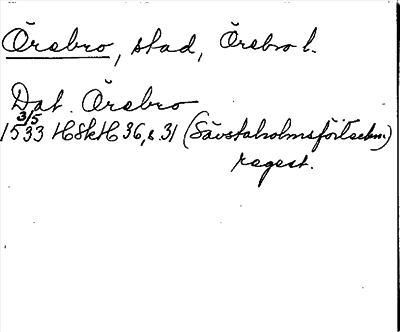 Örebro, stad, Örebro l.
Dat. Örebro
3/5
1533 HSkH 36, s. 31 (Sävstaholmsförteckn.)
regest.